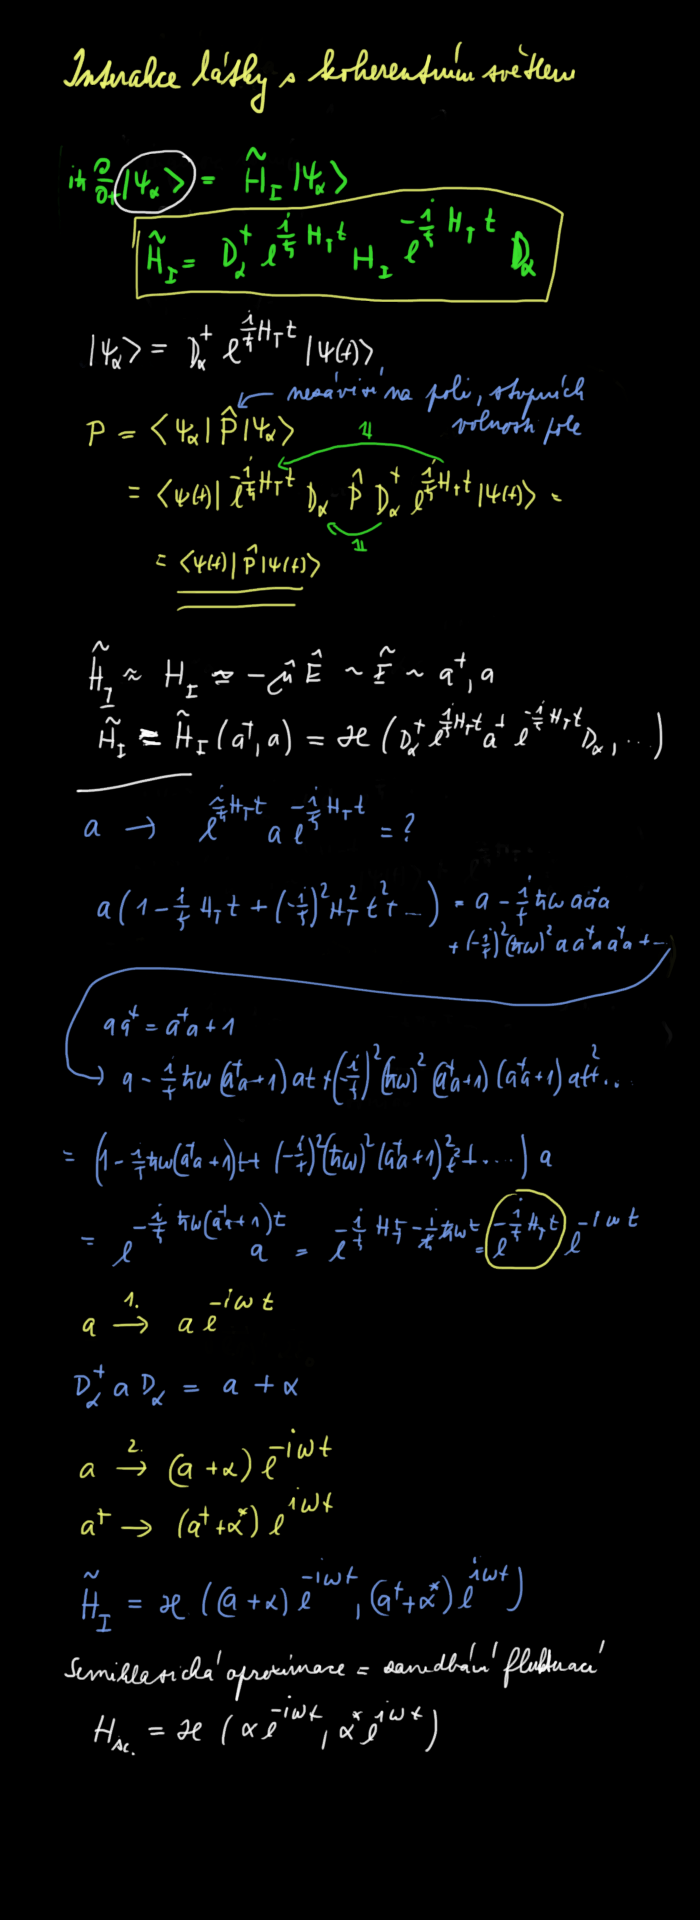 Interakce látky s koherentním světlem
iħ ∂/∂t |ψ_α⟩ = H̃_I |ψ_α⟩
H̃_I = D_α^+ e^{i/ħ H_T t} H_I e^{-i/ħ H_T t} D_α
|ψ_α⟩ = D_α^+ e^{i/ħ H_T t} |ψ(t)⟩
nezávisí na poli, stupních
volnosti pole
P = ⟨ψ_α| P̂ |ψ_α⟩
𝟙
= ⟨ψ(t)| e^{-i/ħ H_T t} D_α P̂ D_α^+ e^{i/ħ H_T t} |ψ(t)⟩ =
𝟙
= ⟨ψ(t)| P̂ |ψ(t)⟩
H̃_I ≈ H_I ≈ -μ̂ Ê ~ Ẽ ~ a^+, a
H̃_I = H̃_I (a^+, a) = ℋ (D_α^+ e^{i/ħ H_T t} a^+ e^{-i/ħ H_T t} D_α, ...)
a → e^{i/ħ H_T t} a e^{-i/ħ H_T t} = ?
a (1 - i/ħ H_T t + (-i/ħ)^2 H_T^2 t^2 + ...) = a - i/ħ ħω a a^+ a
+ (-i/ħ)^2 (ħω)^2 a a^+ a a^+ a + ...
a a^+ = a^+ a + 1
→ a - i/ħ ħω (a^+ a + 1) a t + (-i/ħ)^2 (ħω)^2 (a^+ a + 1) (a^+ a + 1) a t^2 + ...
= (1 - i/ħ ħω (a^+ a + 1) t + (-i/ħ)^2 (ħω)^2 (a^+ a + 1)^2 t^2 + ....) a
= e^{-i/ħ ħω (a^+ a + 1) t} a = e^{-i/ħ H_T t - i/ħ ħω t} = e^{-i/ħ H_T t} e^{-iωt}
a →^{1.} a e^{-iωt}
D_α^+ a D_α = a + α
a →^{2.} (a + α) e^{-iωt}
a^+ → (a^+ + α*) e^{iωt}
H̃_I = ℋ ((a + α) e^{-iωt}, (a^+ + α*) e^{iωt})
Semiklasická aproximace = zanedbání fluktuací
H_{sc.} = ℋ (α e^{-iωt}, α* e^{iωt})